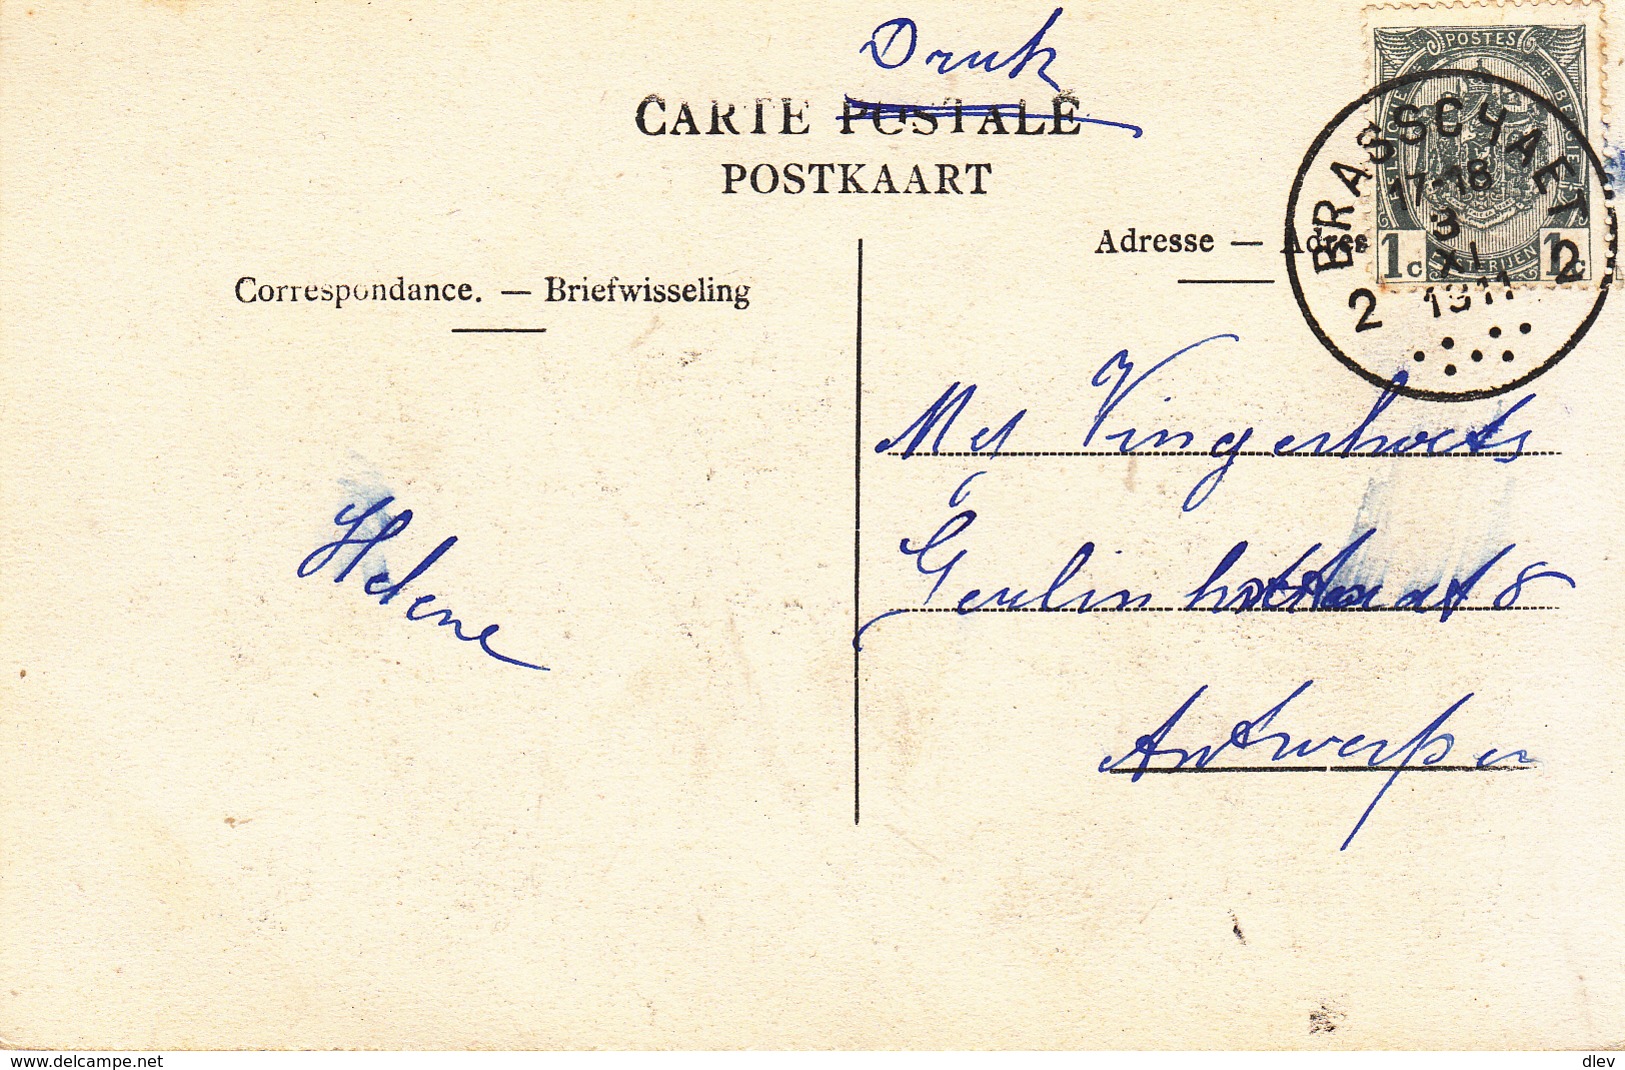 Druk
CARTE POSTALE
POSTKAART
Correspondance. — Briefwisseling
Adresse — Adres
POSTES
BELGIQUE BELGIË
POSTERIJEN
1c 1c
BRASSCHAET
17-18
3
XI
1911
2 2
Mej Vingerhoets
Helene
8
Antwerpen
www.delcampe.net
dlev